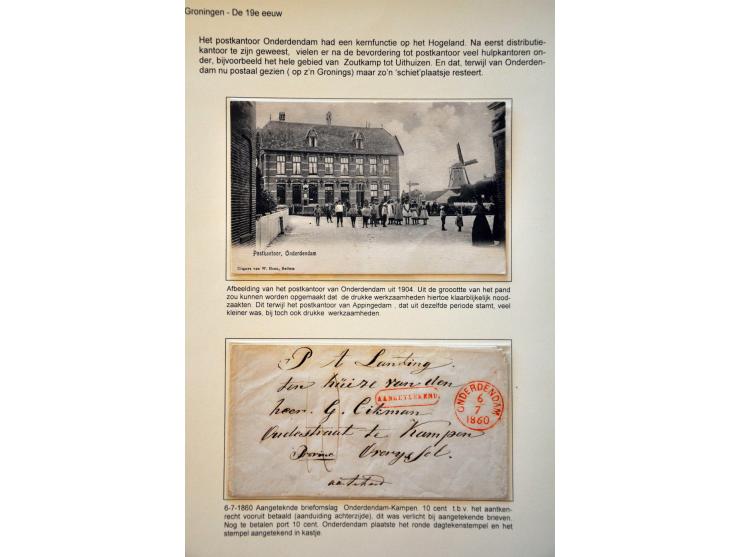 Groningen - De 19e eeuw
Het postkantoor Onderdendam had een kernfunctie op het Hogeland. Na eerst distributie-
kantoor te zijn geweest, vielen er na de bevordering tot postkantoor veel hulpkantoren on-
der, bijvoorbeeld het hele gebied van Zoutkamp tot Uithuizen. En dat, terwijl van Onderden-
dam nu postaal gezien ( op z'n Gronings) maar zo'n 'schiet'plaatsje resteert.
Postkantoor, Onderdendam
Uitgave van W. Bedum
Afbeelding van het postkantoor van Onderdendam uit 1904. Uit de groootte van het pand
zou kunnen worden opgemaakt dat de drukke werkzaamheden hiertoe klaarblijkelijk nood-
zaakten. Dit terwijl het postkantoor van Appingedam , dat uit dezelfde periode stamt, veel
kleiner was, bij toch ook drukke werkzaamheden.
P A Landing
ten huize van den
AANGETEKEND.
heer G. Eikman
Oudestraat te Kampen
Provincie Overyssel.
ONDERDENDAM
6
7
1860
6-7-1860 Aangeteknde briefomslag Onderdendam-Kampen. 10 cent t.b.v. het aantken-
recht vooruit betaald (aanduiding achterzijde), dit was verlicht bij aangetekende brieven.
Nog te betalen port 10 cent. Onderdendam plaatste het ronde dagtekenstempel en het
stempel aangetekend in kastje.